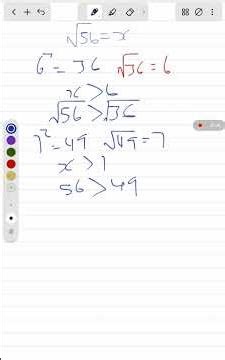 √56 = x
6² = 36 √36 = 6
x > 6
√56 > √36
7² = 49 √49 = 7
x > 7
56 > 49